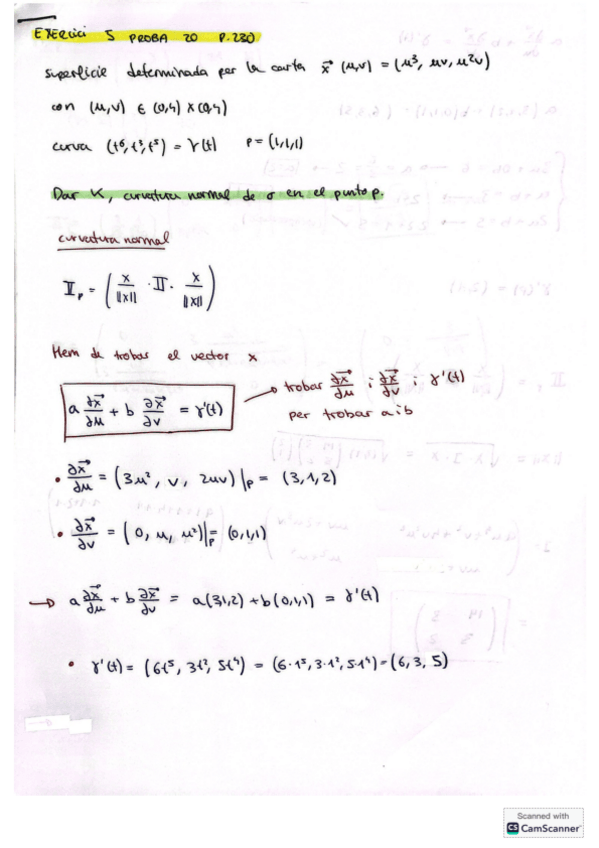 EXERCICI 5 PROBA 20 P.230
superfície determinada per la carta x⃗ (u,v) = (u³, uv, u²v)
con (u,v) ∈ (0,4) x (0,4)
curva (t⁶, t³, t⁵) = γ(t) P = (1,1,1)
Dar K, curvatura normal de σ en el punto p.
curvatura normal
II_p = (x/||x|| · II · x/||x||)
Hem de trobar el vector x
a ∂x⃗/∂u + b ∂x⃗/∂v = γ'(t) → trobar ∂x⃗/∂u i ∂x⃗/∂v i γ'(t)
per trobar a i b
• ∂x⃗/∂u = (3u², v, 2uv)|p = (3,1,2)
• ∂x⃗/∂v = (0, u, u²)|p = (0,1,1)
→ a ∂x⃗/∂u + b ∂x⃗/∂v = a(3,1,2) + b(0,1,1) = γ'(t)
• γ'(t) = (6t⁵, 3t², 5t⁴) = (6·1⁵, 3·1², 5·1⁴) = (6, 3, 5)
Scanned with
CS CamScanner